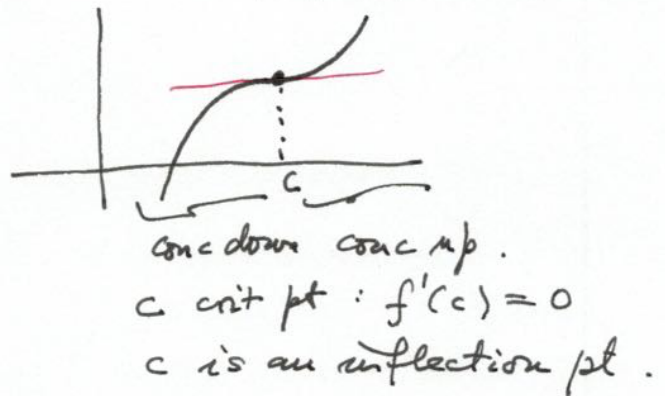 c
conc down conc up.
c crit pt : f'(c) = 0
c is an inflection pt.